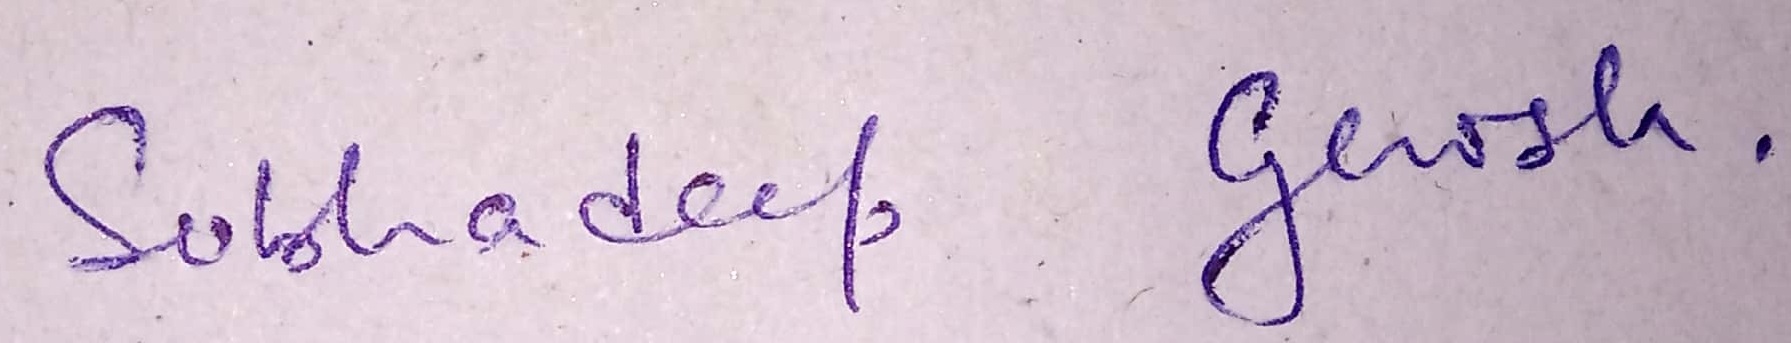 Sobhadeep Ghosh.